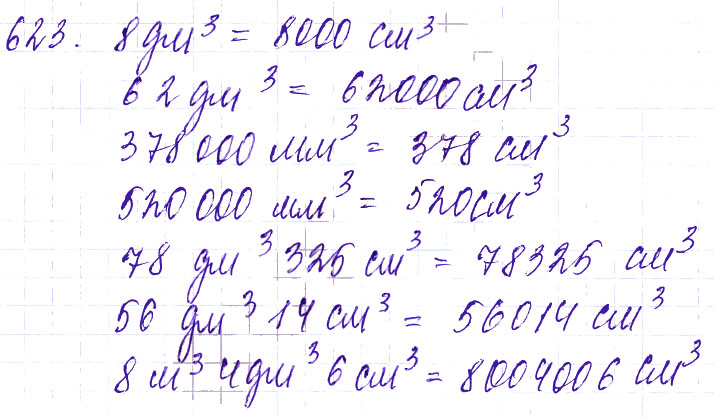 623. 8 дм³ = 8000 см³
62 дм³ = 62000 см³
378 000 мм³ = 378 см³
520 000 мм³ = 520 см³
78 дм³ 325 см³ = 78325 см³
56 дм³ 14 см³ = 56014 см³
8 м³ 4 дм³ 6 см³ = 8004006 см³